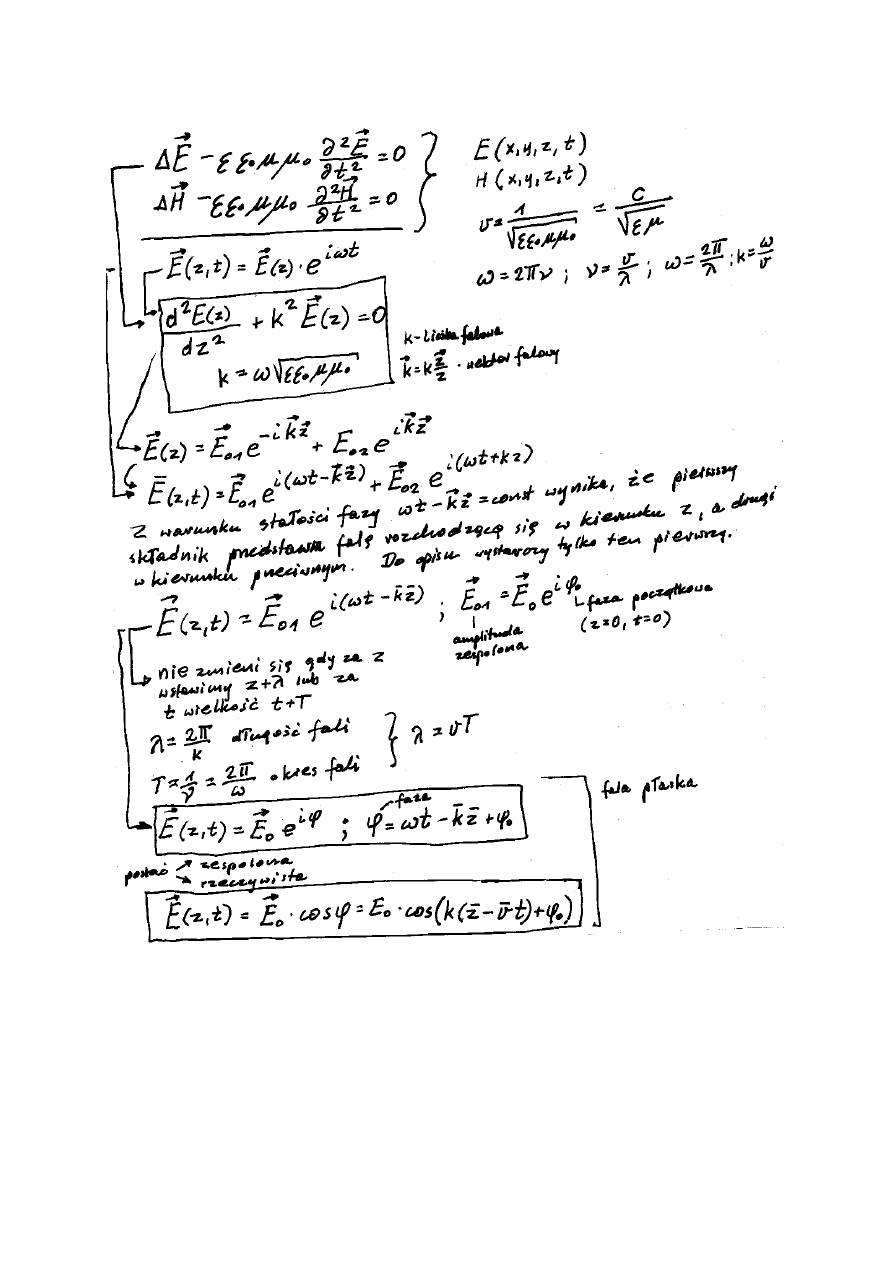 ΔE⃗ − εε₀μμ₀ ∂²E⃗/∂t² = 0
ΔH⃗ − εε₀μμ₀ ∂²H⃗/∂t² = 0
E(x,y,z,t)
H(x,y,z,t)
v = 1/√(εε₀μμ₀) = c/√(εμ)
ω = 2πν ; ν = v/λ ; ω = 2π/λ ; k = ω/v
E⃗(z,t) = E⃗(z)·e^{iωt}
d²E(z)/dz² + k² E⃗(z) = 0
k = ω√(εε₀μμ₀)
k - liczba falowa
k⃗ = k z⃗/z - wektor falowy
E⃗(z) = E⃗₀₁e^{-ik⃗z⃗} + E₀₂e^{ik⃗z⃗}
E̅(z,t) = E⃗₀₁e^{i(ωt-k̅z̅)} + E⃗₀₂ e^{i(ωt+kz)}
Z warunku stałości fazy ωt - k̅z̅ = const wynika, że pierwszy
składnik przedstawia falę rozchodzącą się w kierunku z, a drugi
w kierunku przeciwnym. Do opisu wystarczy tylko ten pierwszy.
E⃗(z,t) = E⃗₀₁ e^{i(ωt - k̅z̅)} ; E⃗₀₁ = E⃗₀e^{iφ₀}
faza początkowa
(z=0, t=0)
amplituda
zespolona
nie zmieni się gdy za z
wstawimy z+λ lub za
t wielkość t+T
λ = 2π/k długość fali
T = 1/ν = 2π/ω okres fali
λ = vT
faza
E⃗(z,t) = E⃗₀ e^{iφ} ; φ = ωt - k̅z̅ + φ₀
fala płaska
postać zespolona
rzeczywista
E⃗(z,t) = E⃗₀·cosφ = E₀·cos(k(z̅-v̅t)+φ₀)